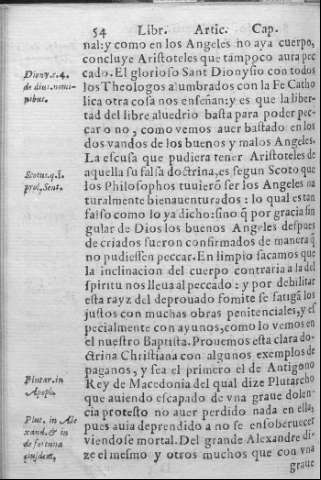 54 Libr. Artic. Cap.
nal: y como en los Angeles no aya cuerpo,
concluye Aristoteles que tampoco aura pe
cado. El glorioso Sant Dionysio con todos
los Theologos alumbrados con la Fe Catho
lica otra cosa nos enseñan: y es que la liber-
tad del libre aluedrio basta para poder pec-
car o no, como vemos auer bastado en los
dos vandos de los buenos y malos Angeles.
La escusa que pudiera tener Aristoteles de
aquella su falsa doctrina, es segun Scoto que
los Philosophos tuuierõ ser los Angeles na
turalmente bienauenturados: lo qual es tan
falso como lo ya dicho: sino q̃ por gracia sin
gular de Dios los buenos Angeles despues
de criados fueron confirmados de manera q̃
no pudiessen peccar. En limpio sacamos que
la inclinacion del cuerpo contraria a la del
spiritu nos lleua al peccado: y por debilitar
esta rayz del deprouado fomite se fatigã los
justos con muchas obras penitenciales, y es
pecialmente con ayunos, como lo vemos en
el nuestro Baptista. Prouemos esta clara do-
ctrina Christiana con algunos exemplos de
paganos, y sea el primero el de Antigono
Rey de Macedonia del qual dize Plutarcho
que auiendo escapado de vna graue dolen-
cia protesto no auer perdido nada en ella,
pues auia deprendido a no se ensoberuecer
viendose mortal. Del grande Alexandre di-
ze el mesmo y otros muchos que con vna
graue
Diony. c. 4.
de diui. nomi-
nibus.
Scotus. q. 1.
prol. Sent.
Plutar. in
Apoph.
Plut. in Ale
xand. & in
de fortuna
eiusdem.